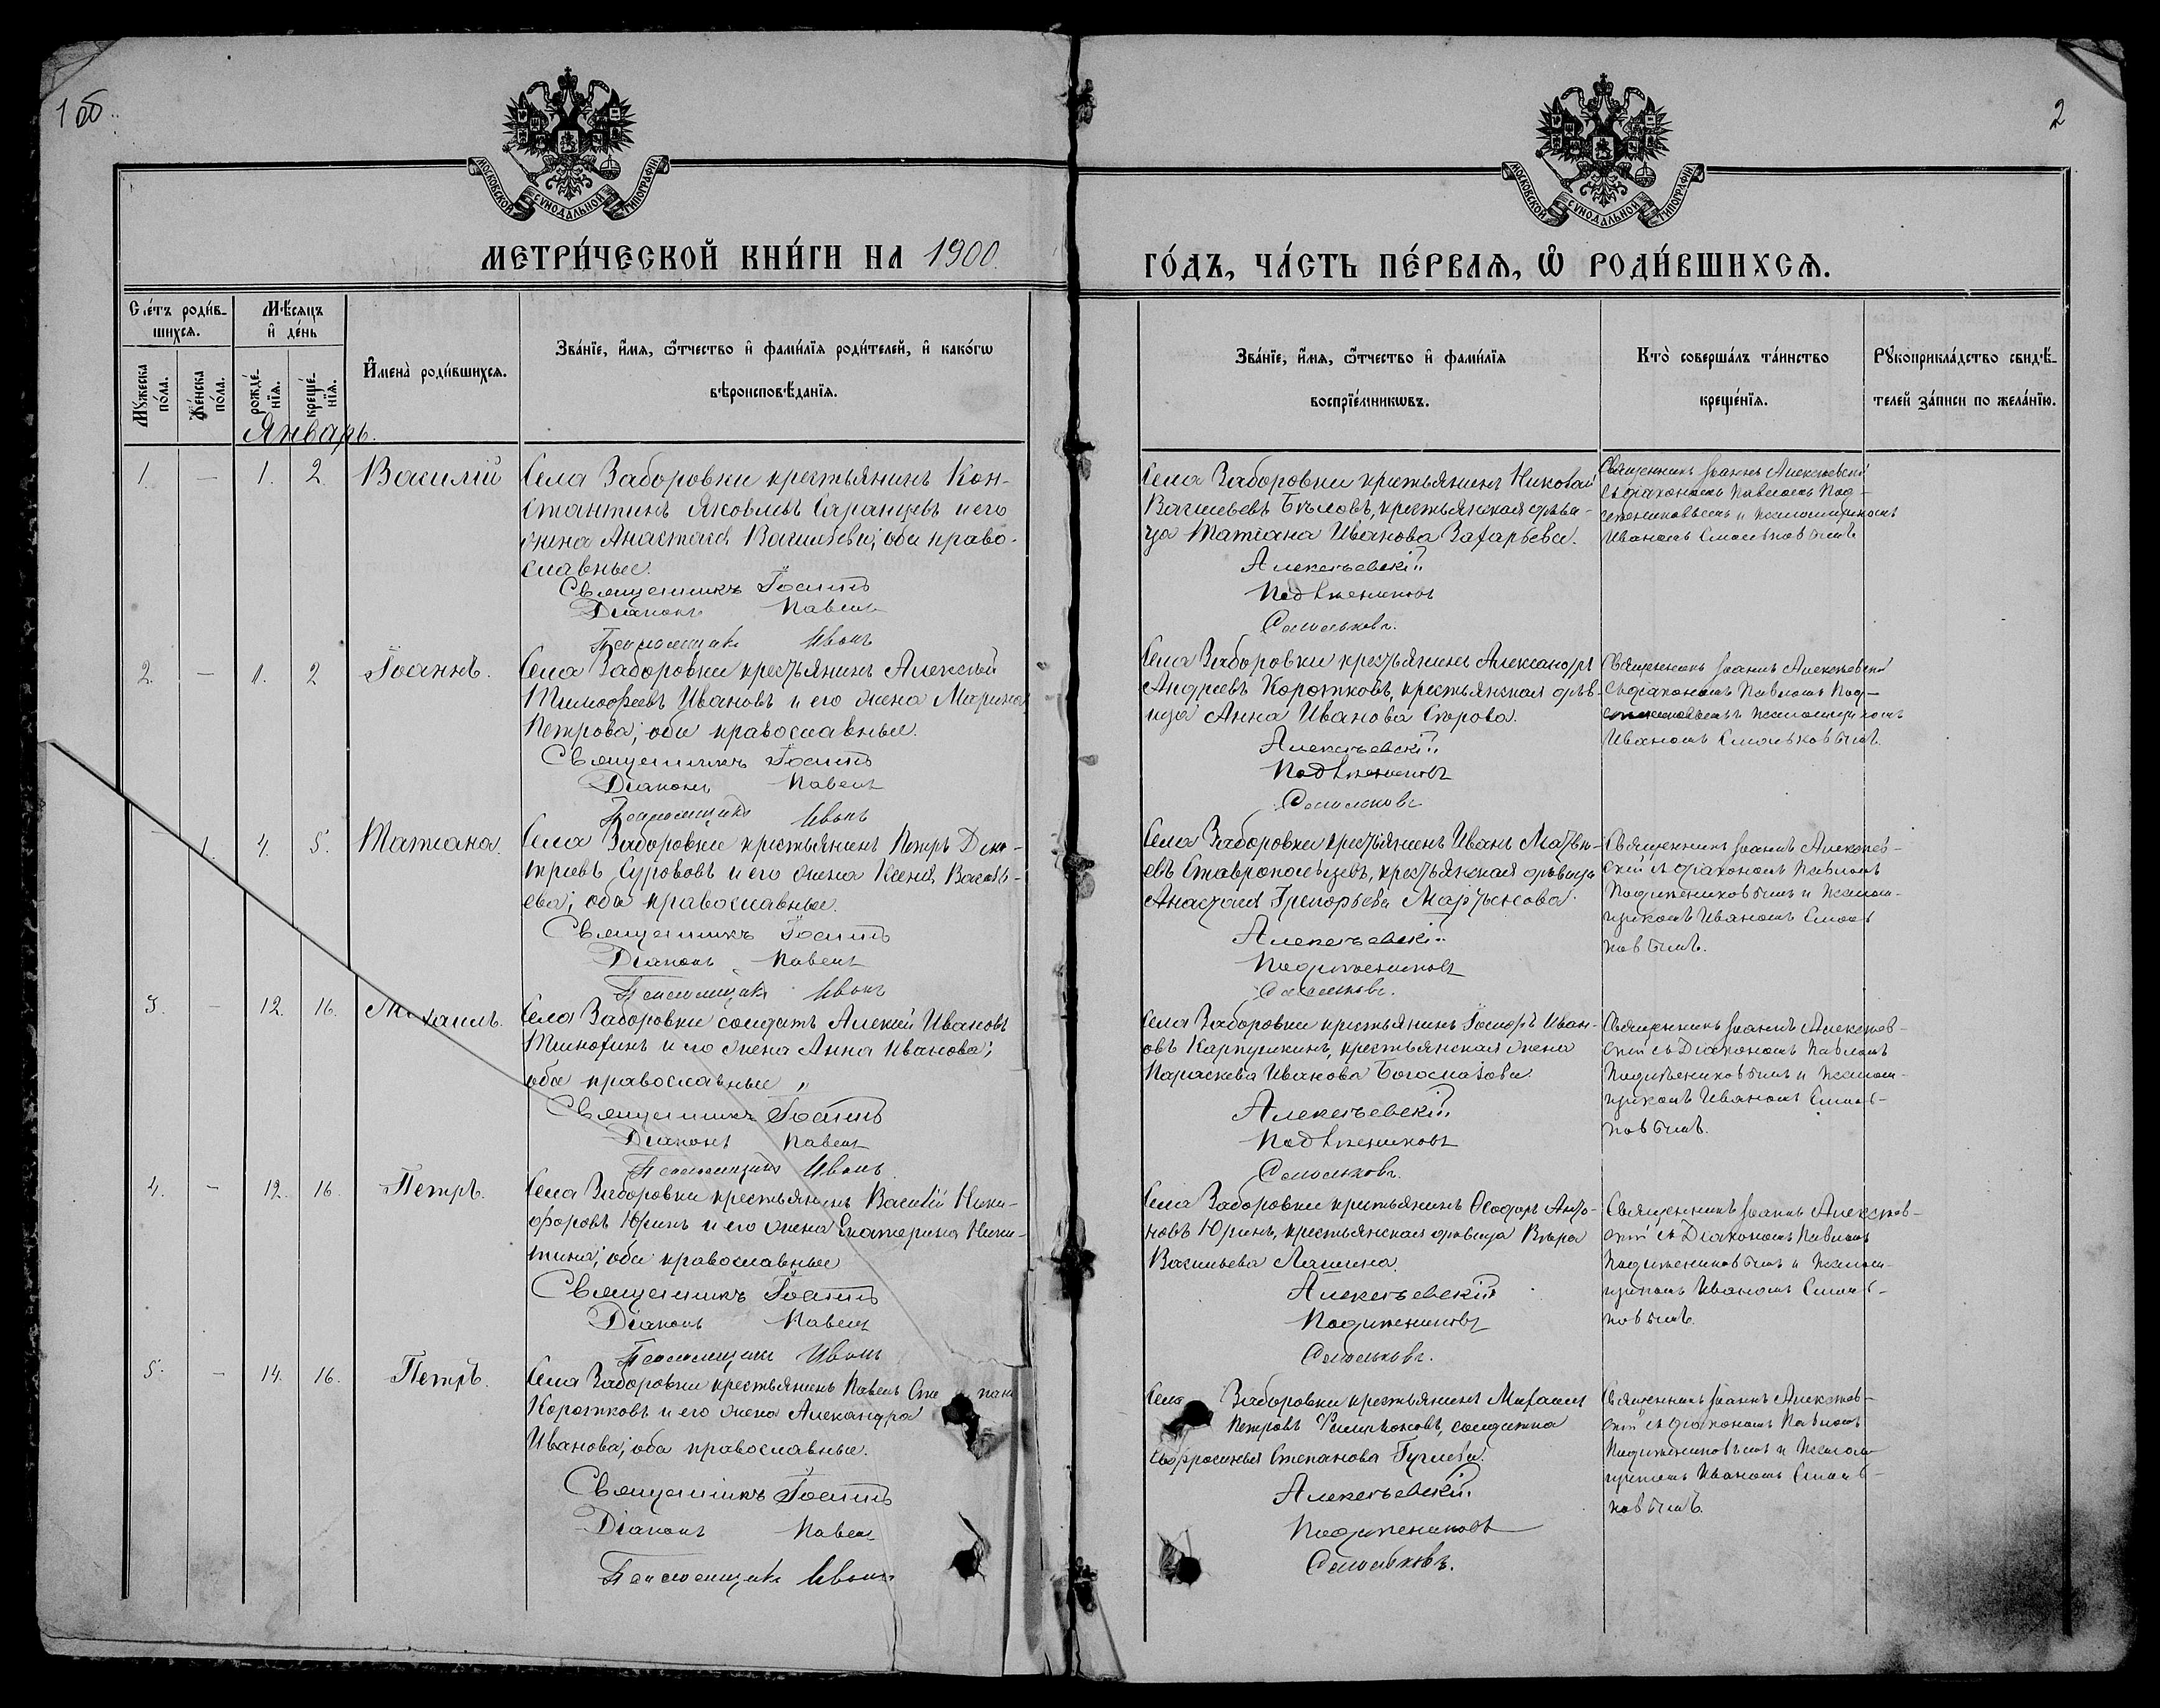 1 об.
2
МОСКОВСКОЙ СУНОДАЛЬНОЙ ТИПОГРАФІИ
МОСКОВСКОЙ СУНОДАЛЬНОЙ ТИПОГРАФІИ
МЕТРИ́ЧЕСКОЙ КНИ́ГИ НА 1900.
ГО́ДЪ, ЧА́СТЬ ПЕ́РВАѦ, Ѡ҆ РОДИ́ВШИХСѦ.
Сче́тъ роди́в-
шихсѧ.
Мꙋжеска по́ла.
Же́нска по́ла.
Мѣ́сѧцъ
и҆ де́нь
рожде́-
нїѧ.
креще́-
нїѧ.
И҆мена̀ роди́вшихсѧ.
Зва́нїе, и҆́мѧ, ѻ҆́тчество и҆ фами́лїѧ роди́телей, и҆ како́гѡ
вѣроисповѣ́данїѧ.
Зва́нїе, и҆́мѧ, ѻ҆́тчество и҆ фами́лїѧ
воспрїе́мникѡвъ.
Кто̀ соверша́лъ та́инство
креще́нїѧ.
Рꙋкоприкла́дство свидѣ́-
телей за́писи по жела́нїю.
Январь.
1. — 1. 2. Василій
Села Заборовки крестьянинъ Кон-
стантинъ Яковлевъ Саранцевъ и его
жена Анастасія Васильева; оба право-
славные.
Священникъ Іоаннъ
Діаконъ Павелъ
Псаломщикъ Иванъ
Села Заборовки крестьянинъ Николай
Васильевъ Бѣловъ, крестьянская дѣви-
ца Татіана Иванова Захарьева.
Алексѣевскій
Подъячениковъ
Смольковъ.
Священникъ Іоаннъ Алексѣевскій
съ діакономъ Павломъ Под-
и псаломщикомъ
Иваномъ Смольковымъ
2. — 1. 2 Іоаннъ.
Села Заборовки крестьянинъ Алексѣй
Тимоѳеевъ Ивановъ и его жена Марина
Петрова; оба православные.
Священникъ Іоаннъ
Діаконъ Павелъ
Псаломщикъ Иванъ
Села Заборовки крестьянинъ Александръ
Андреевъ Коротковъ, крестьянская дѣв-
ица Анна Иванова Егорова.
Алексѣевскій
Смольковъ
Священникъ Іоаннъ Алексѣевскій
съ діакономъ Павломъ Под-
и псаломщикомъ
Иваномъ Смольковымъ.
— 1. 4. 5. Татіана.
Села Заборовки крестьянинъ Петръ Дми-
тріевъ Сурововъ и его жена Ксенія Василь-
ева; оба православные.
Священникъ Іоаннъ
Діаконъ Павелъ
Псаломщикъ Иванъ
Села Заборовки крестьянинъ Иванъ Матвѣ-
евъ Ставропольцевъ, крестьянская дѣвица
Анастасія Григорьева Мартьянова.
Алексѣевскій
Смольковъ.
Священникъ Іоаннъ Алексѣев-
скій съ діакономъ Павломъ
и псалом-
щикомъ Иваномъ Смоль-
ковымъ.
3. — 12. 16. Михаилъ.
Села Заборовки солдатъ Алексій Ивановъ
и его жена Анна Иванова;
оба православные
Священникъ Іоаннъ
Діаконъ Павелъ
Псаломщикъ Иванъ
Села Заборовки крестьянинъ Иван-
овъ Карпушкинъ, крестьянская жена
Параскева Иванова
Алексѣевскій
Смольковъ.
Священникъ Іоаннъ Алексѣев-
скій съ Діакономъ Павломъ
и псалом-
щикомъ Иваномъ Смоль-
ковымъ.
4. — 12. 16. Петръ.
Села Заборовки крестьянинъ Василій Ники-
форовъ Юринъ и его жена Екатерина Ники-
тина; оба православные
Священникъ Іоаннъ
Діаконъ Павелъ
Псаломщикъ Иванъ
Села Заборовки крестьянинъ Ѳеодоръ Анто-
новъ Юринъ, крестьянская дѣвица Вѣра
Васильева Лашина.
Алексѣевскій
Смольковъ.
Священникъ Іоаннъ Алексѣев-
скій съ Діакономъ Павломъ
и псалом-
щикомъ Иваномъ Смоль-
ковымъ.
5. — 14. 16. Петръ.
Села Заборовки крестьянинъ Павелъ
Коротковъ и его жена Александра
Иванова; оба православные.
Священникъ Іоаннъ
Діаконъ Павелъ
Псаломщикъ Иванъ
Села Заборовки крестьянинъ Михаилъ
Петровъ солдатка
Евфросинья Степанова
Алексѣевскій
Смольковъ.
Священникъ Іоаннъ Алексѣев-
скій съ діакономъ Павломъ
и псалом-
щикомъ Иваномъ Смоль-
ковымъ.